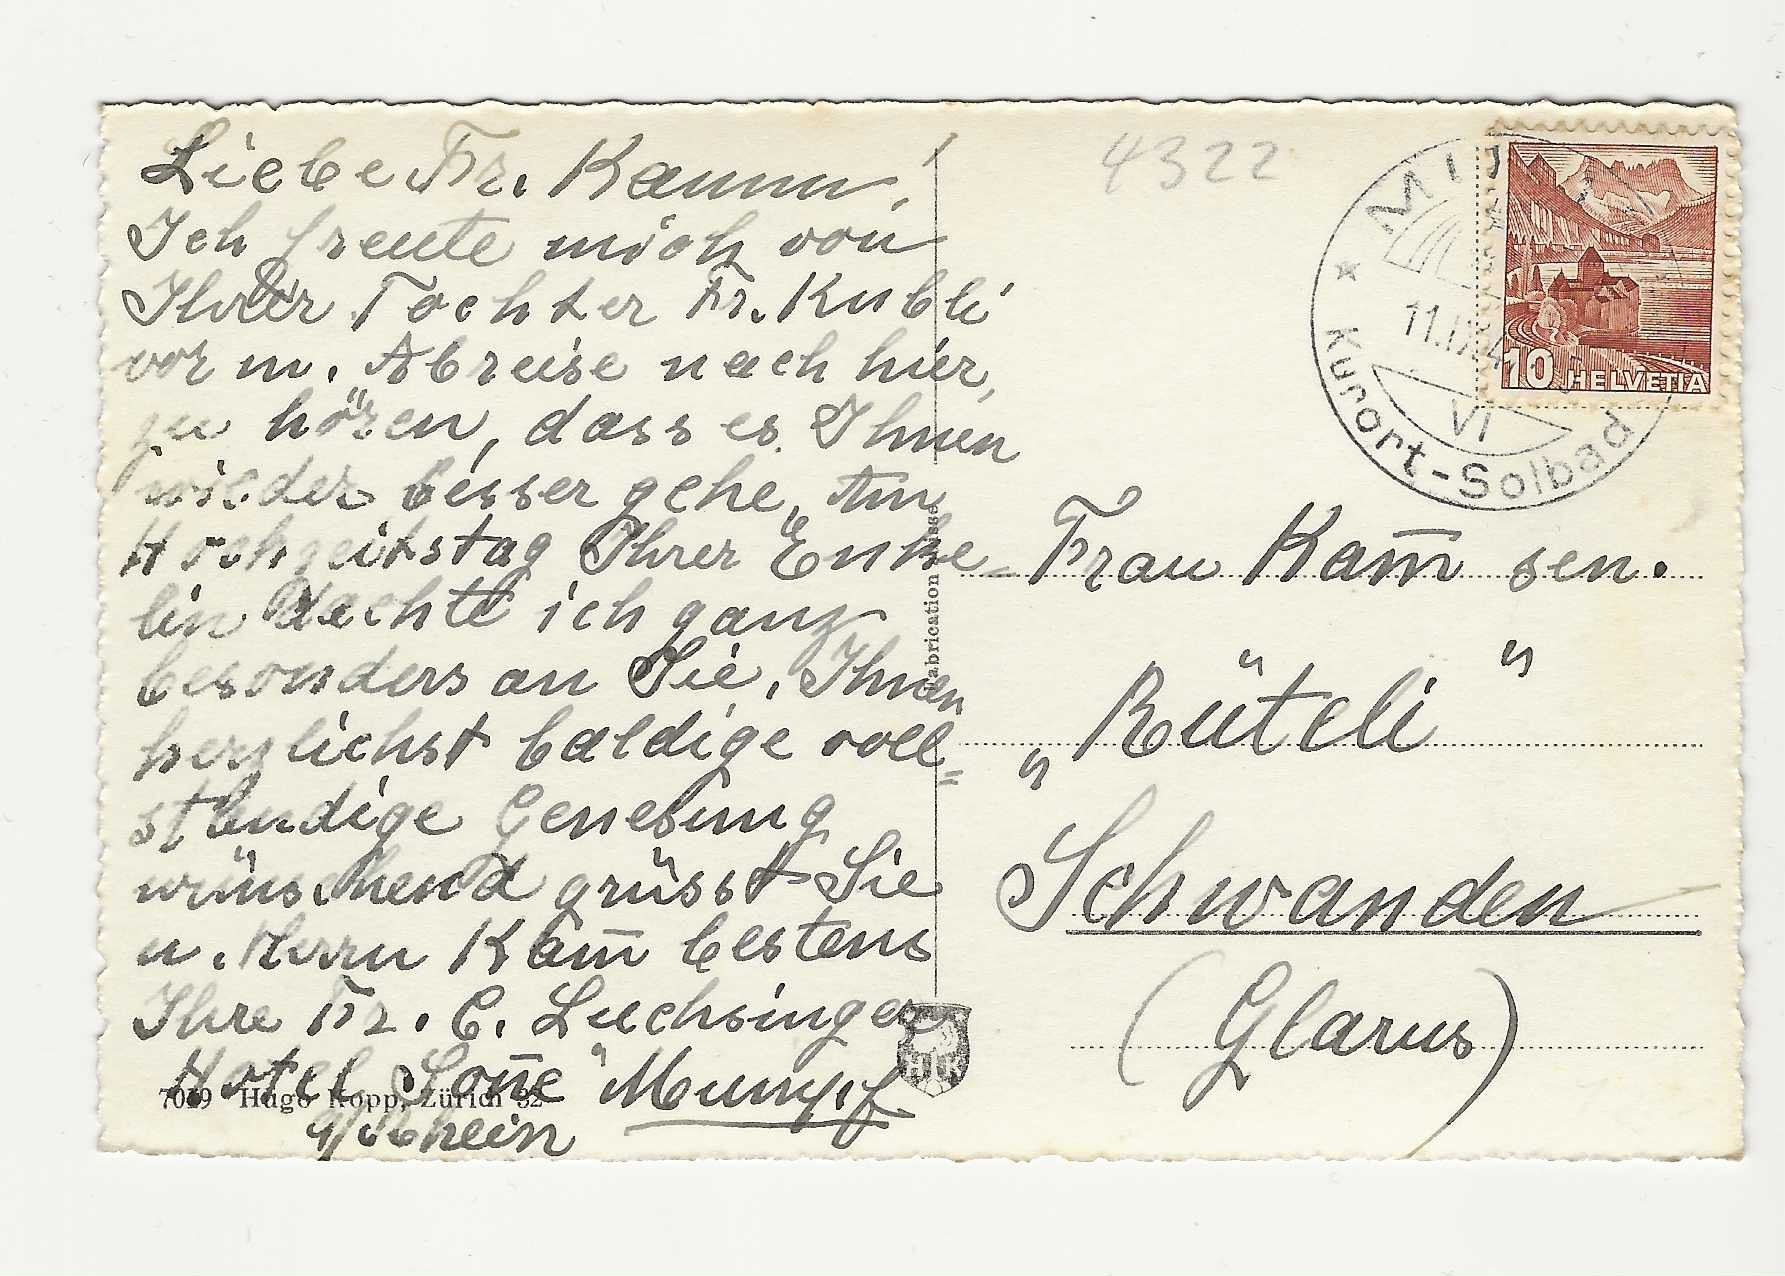 Liebe Fr. Kamm,
Ich freute mich von
Ihrer Tochter Fr. Kubli
vor m. Abreise nach hier,
zu hören, dass es Ihnen
wieder besser gehe. Am
Hochzeitstag Ihrer Enke=
lin dachte ich ganz
besonders an Sie. Ihnen
herzlichst baldige voll=
ständige Genesung
wünschend grüsst Sie
u. Herrn Kam̄ bestens
Ihre Fr. E. Luchsinger
Hotel "Son̄e" Mumpf
a/Rhein
7019 Hugo Kopp, Zürich 32
Fabrication
HK
4322
11.IX.4
VI
Kurort-Solbad
10 HELVETIA
Frau Kam̄ sen.
„Rüteli"
Schwanden
(Glarus)